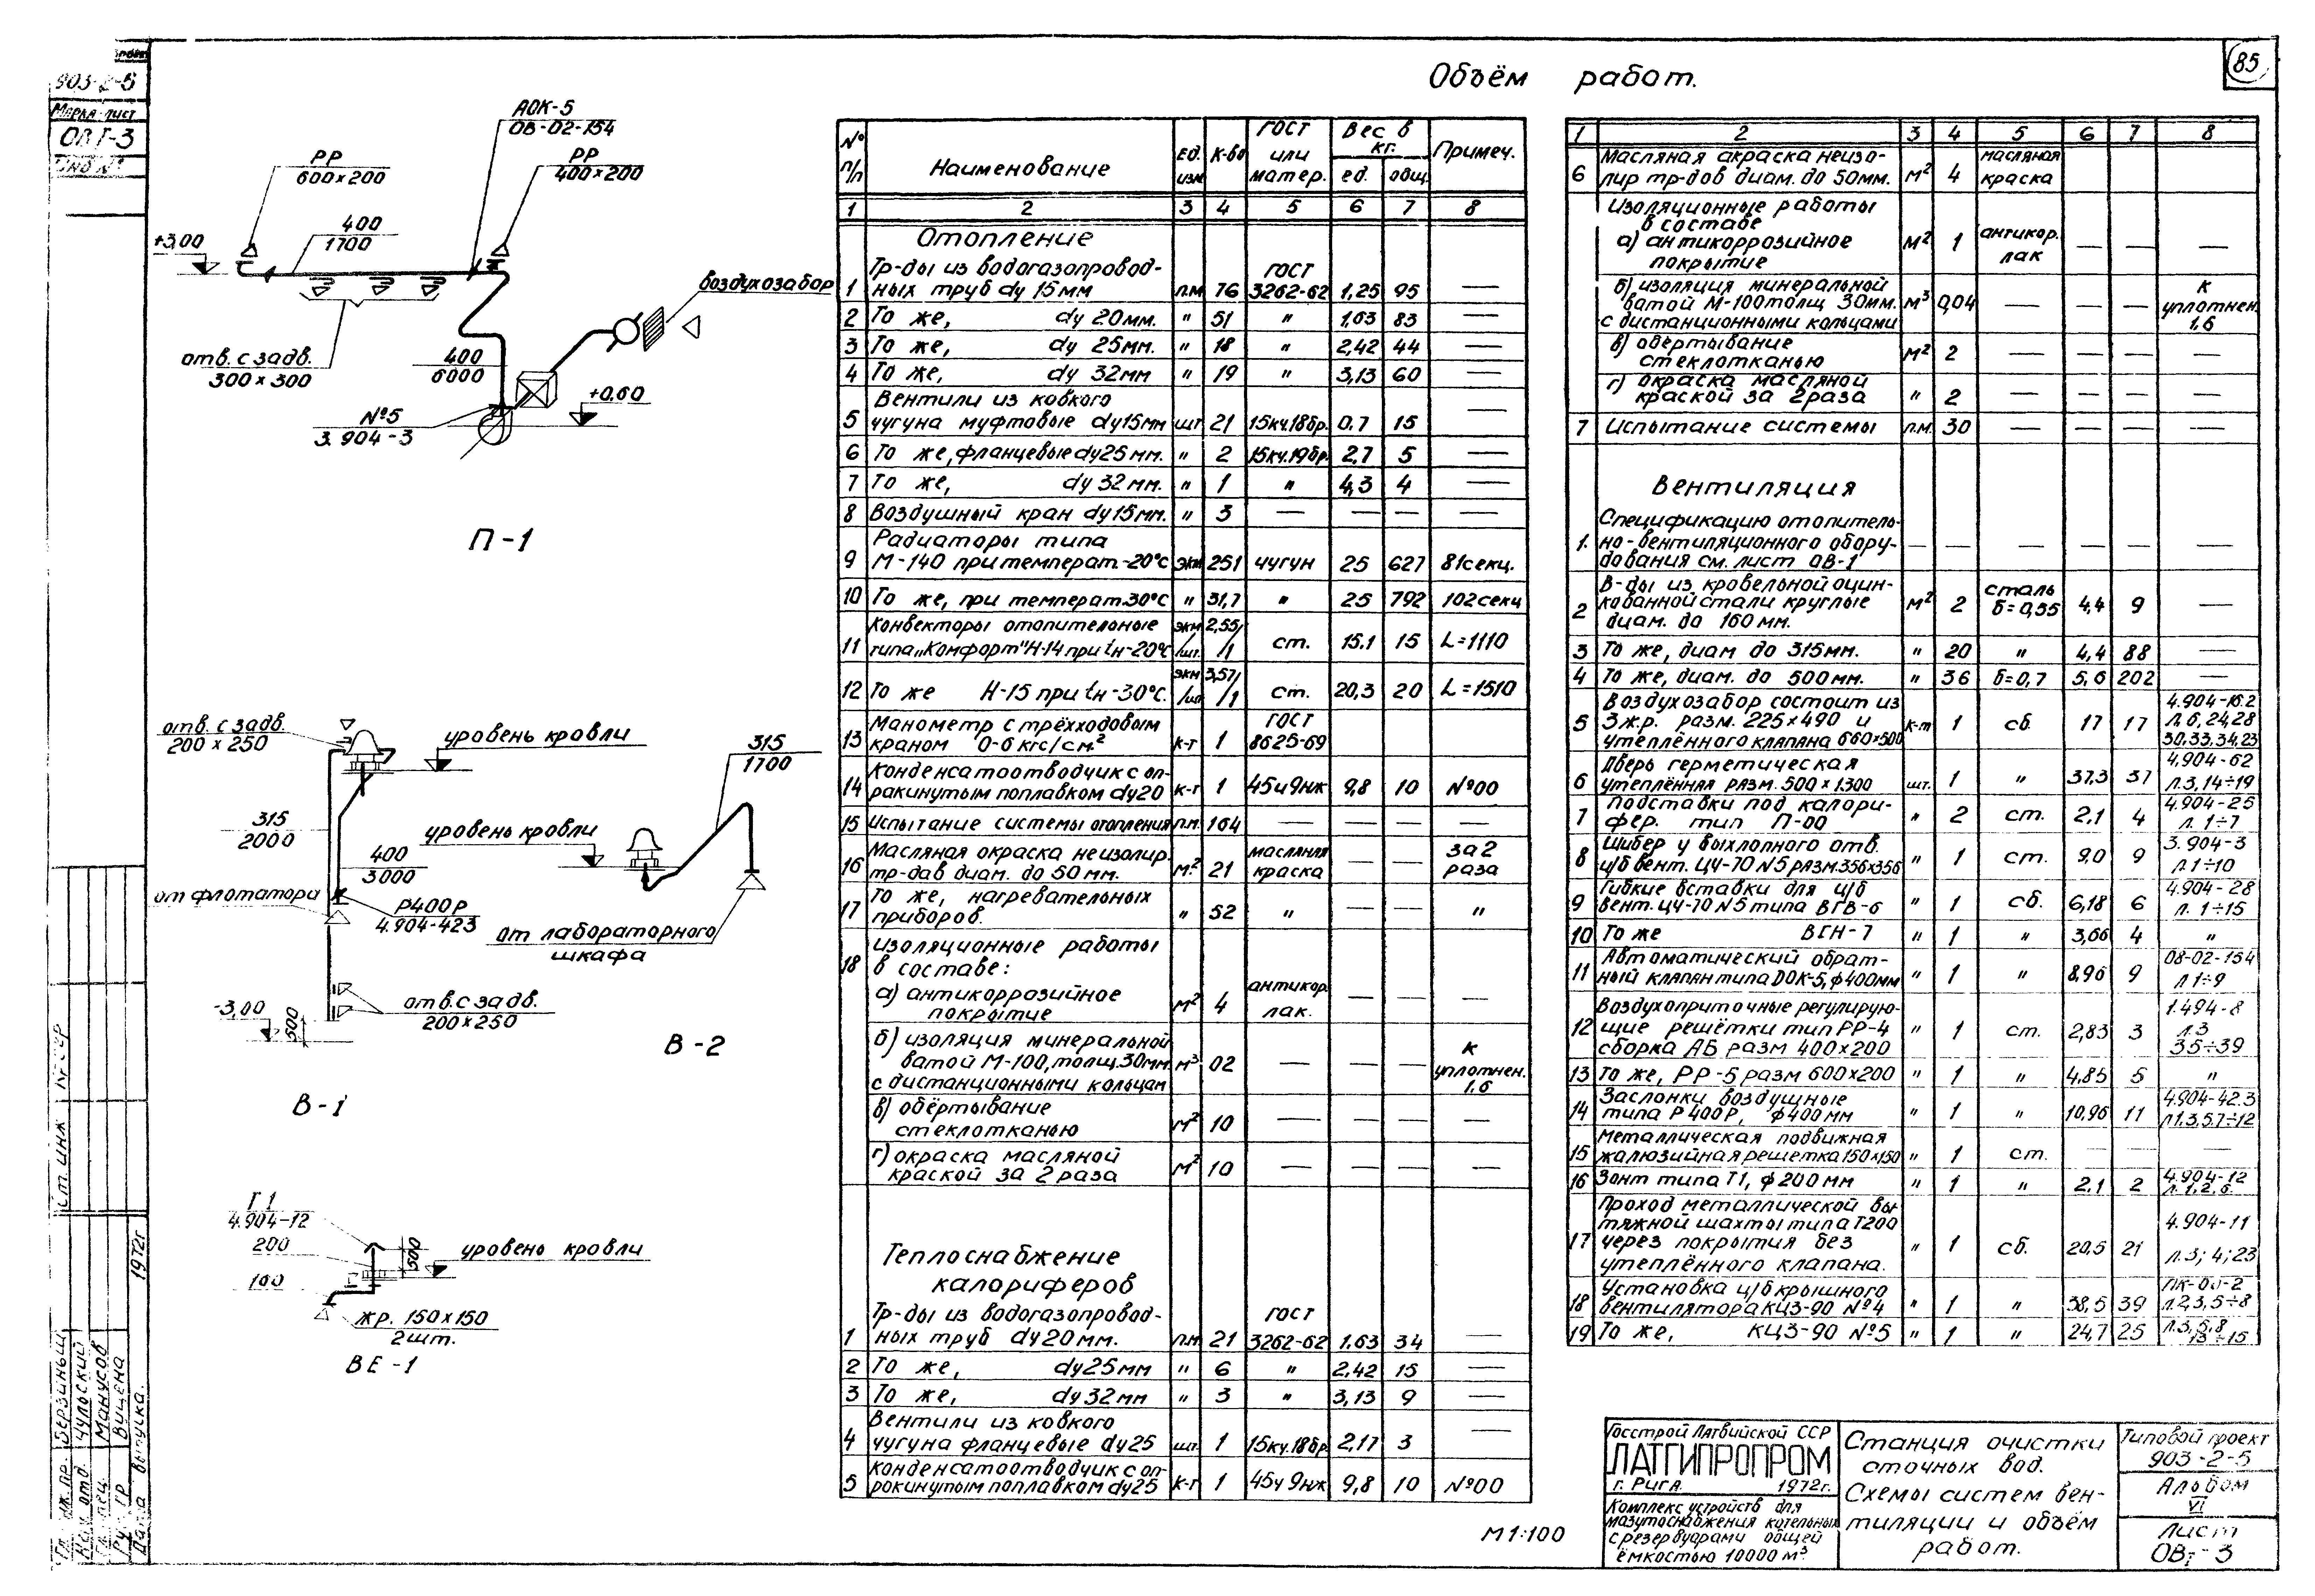 85
903-2-5
Марка-лист
ОВТ-3
Объём работ.
АОК-5
ОВ-02-154
РР
600×200
РР
400×200
+3,00
400
1700
воздухозабор
отв. с задв.
300×300
400
6000
+0,60
№5
3.904-3
П-1
отв. с задв.
200×250
уровень кровли
315
1700
315
2000
уровень кровли
400
3000
от флотатора
Р400Р
4.904-423
от лабораторного
шкафа
-3,00
500
отв. с задв.
200×250
В-2
В-1
Т1
4.904-12
200
500
уровень кровли
100
жр. 150×150
2шт.
ВЕ-1
№ п/п Наименование Ед. изм К-во ГОСТ или матер. Вес в кг. ед. общ. Примеч.
1 2 3 4 5 6 7 8
Отопление
Тр-ды из водогазопровод-
1 ных труб dу 15мм п.м. 76 ГОСТ 3262-62 1,25 95 —
2 То же, dу 20мм. " 51 " 1,63 83 —
3 То же, dу 25мм. " 18 " 2,42 44 —
4 То же, dу 32мм " 19 " 3,13 60 —
Вентили из ковкого
5 чугуна муфтовые dу15мм шт 21 15кч.18бр. 0,7 15 —
6 То же, фланцевые dу25мм. " 2 15кч.19бр. 2,7 5 —
7 То же, dу 32мм. " 1 " 4,3 4 —
8 Воздушный кран dу15мм. " 3 — — — —
Радиаторы типа
9 М-140 при температ.-20°С экм 251 чугун 25 627 81секц.
10 То же, при температ.30°С " 31,7 " 25 792 102секц
Конвекторы отопительные экм 2,55/
11 типа „Комфорт" Н-14 при tн-20°С /шт. /1 ст. 15.1 15 L=1110
экм 3,57/
12 То же Н-15 при tн-30°С. /шт /1 ст. 20,3 20 L=1510
Манометр с трёхходовым ГОСТ
13 краном 0-6 кгс/см.² к-т 1 8625-69
Конденсатоотводчик с оп-
14 ракинутым поплавком dу20 к-т 1 45ч9нж 9,8 10 №00
15 Испытание системы отопления п.м. 164 — — — —
Масляная окраска неизолир. масляная за 2
16 тр-дов диам. до 50мм. м.² 21 краска — — раза
То же, нагревательных
17 приборов. " 52 " — — "
Изоляционные работы
18 в составе:
а) антикоррозийное антикор.
покрытие м² 4 лак. — — —
б) изоляция минеральной к
ватой М-100, толщ.30мм. м³ 02 — — — уплотнен.
с дистанционными кольцам 1,6
в) обёртывание
стеклотканью м² 10 — — — —
г) окраска масляной
краской за 2 раза м² 10 — — — —
Теплоснабжение
калориферов
Тр-ды из водогазопровод- ГОСТ
1 ных труб dу20мм. п.м. 21 3262-62 1,63 34 —
2 То же, dу25мм " 6 " 2,42 15 —
3 То же, dу32мм " 3 " 3,13 9 —
Вентили из ковкого
4 чугуна фланцевые dу25 шт. 1 15кч.18бр 2,17 3 —
Конденсатоотводчик с оп-
5 рокинутым поплавком dу25 к-т 1 45ч9нж 9,8 10 №00
1 2 3 4 5 6 7 8
Масляная акраска неизо- масляная
6 лир тр-дов диам. до 50мм. м² 4 краска
Изоляционные работы
в составе
а) антикоррозийное м² 1 антикор. — — —
покрытие лак
б) изоляция минеральной к
ватой М-100толщ 30мм. м³ 0,04 — — — уплотнен.
с дистанционными кольцами 1,6
в) обёртывание
стеклотканью м² 2 — — — —
г) окраска масляной
краской за 2раза " 2 — — — —
7 Испытание системы п.м. 30 — — — —
Вентиляция
Спецификацию отопитель-
1. но-вентиляционного обору- — — — — — —
дования см. лист ОВ-1
В-ды из кровельной оцин- сталь
2 кованной стали круглые м² 2 δ=0,55 4,4 9 —
диам. до 160мм.
3 То же, диам до 315мм. " 20 " 4,4 88 —
4 То же, диам. до 500мм. " 36 δ=0,7 5,6 202 —
Воздухозабор состоит из 4.904-16.2
5 3ж.р. разм. 225×490 и к-т 1 сб. 17 17 л.6,24,28
утеплённого клапана 660×500 30.33.34,23
Дверь герметическая 4.904-62
6 утеплённая разм. 500×1300 шт. 1 " 37,3 37 л.3,14÷19
Подставки под калори- 4.904-25
7 фер. тип П-00 " 2 ст. 2,1 4 л. 1÷7
Шибер у выхлопного отв. 3.904-3
8 ц/б вент. ЦЧ-70 N5 разм.356×356 " 1 ст. 9,0 9 л.1÷10
Гибкие вставки для ц/б 4.904-28
9 вент. ЦЧ-70 N5 типа ВГВ-6 " 1 сб. 6,18 6 л. 1÷15
10 То же ВГН-7 " 1 " 3,66 4 "
Автоматический обрат- 08-02-154
11 ный клапан типа DОК-5, ф400мм " 1 " 8,96 9 л1÷9
Воздухоприточные регулирую- 1.494-8
12 щие решётки тип РР-4 " 1 ст. 2,83 3 л.3
сборка АБ разм 400×200 35÷39
13 То же, РР-5 разм 600×200 " 1 " 4,85 5 "
Заслонки воздушные 4.904-42.3
14 типа Р400Р, ф400мм " 1 " 10,96 11 л1.3,5.7÷12
Металлическая подвижная
15 жалюзийная решетка 150×150 " 1 ст. — — —
16 Зонт типа Т1, ф200мм " 1 " 2,1 2 4.904-12 л.1,2,6.
Проход металлической вы-
тяжной шахты типа Т200 4.904-11
17 через покрытия без " 1 сб. 20,5 21 л.3; 4; 23
утеплённого клапана.
Установка ц/б крышного ПК-00-2
18 вентилятора КЦ3-90 №4 " 1 " 38,5 39 л.2,3,5÷8
19 То же, КЦ3-90 №5 " 1 " 24,7 25 л.3,5,8 13÷15
М1:100
Госстрой Латвийской ССР
ЛАТГИПРОПРОМ
г. Рига 1972г.
Комплекс устройств для
мазутоснабжения котельных
с резервуарами общей
ёмкостью 10000 м³
Станция очистки
сточных вод.
Схемы систем вен-
тиляции и объём
работ.
Типовой проект
903-2-5
Альбом
VI
Лист
ОВт-3
Ст. инж
Гл. инж. пр. Берзиньш
Нач. отд. Чульский
Гл. спец. Манусов
Рук. гр Вищена
Дата выпуска. 1972г